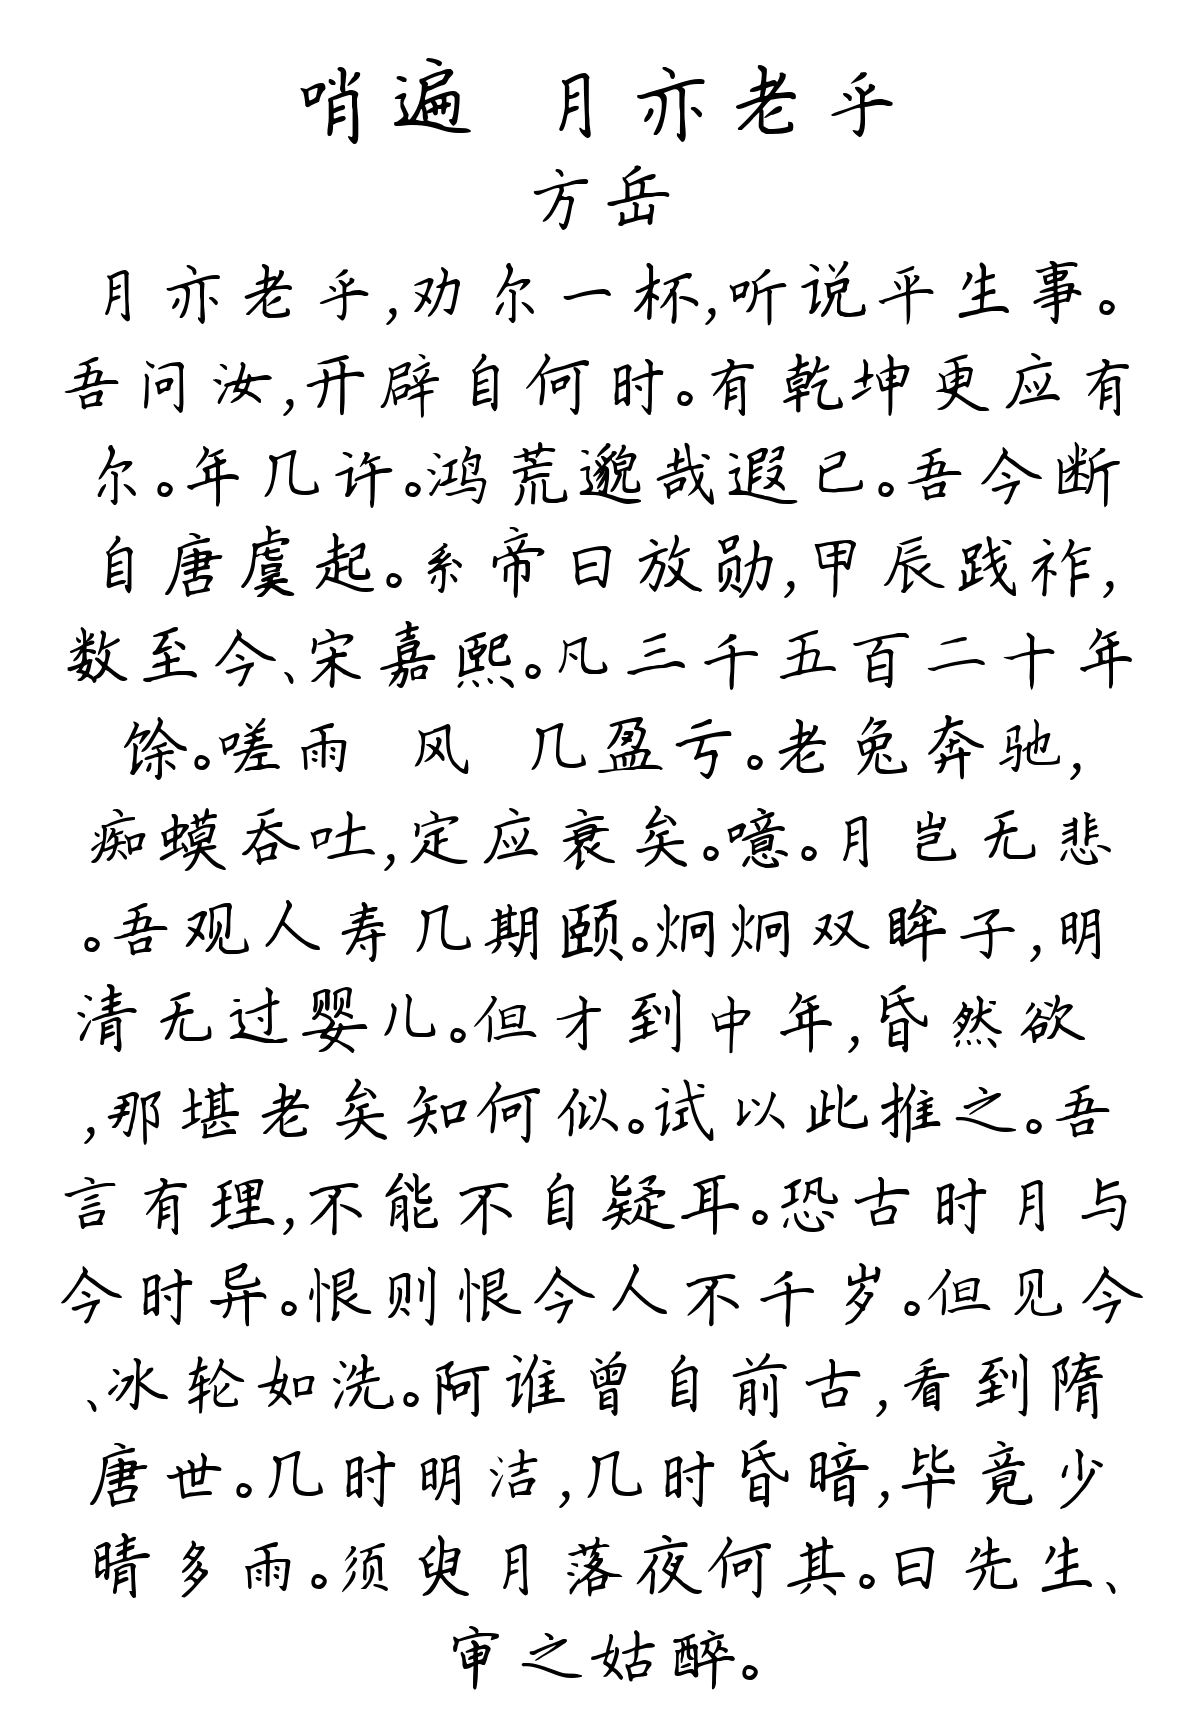 哨遍 月亦老乎
方岳
月亦老乎,劝尔一杯,听说平生事。
吾问汝,开辟自何时。有乾坤更应有
尔。年几许。鸿荒邈哉遐已。吾今断
自唐虞起。系帝曰放勋,甲辰践祚,
数至今、宋嘉熙。凡三千五百二十年
馀。嗟雨 风 几盈亏。老兔奔驰,
痴蟆吞吐,定应衰矣。噫。月岂无悲
。吾观人寿几期颐。炯炯双眸子,明
清无过婴儿。但才到中年,昏然欲
,那堪老矣知何似。试以此推之。吾
言有理,不能不自疑耳。恐古时月与
今时异。恨则恨今人不千岁。但见今
、冰轮如洗。阿谁曾自前古,看到隋
唐世。几时明洁,几时昏暗,毕竟少
晴多雨。须臾月落夜何其。曰先生、
审之姑醉。